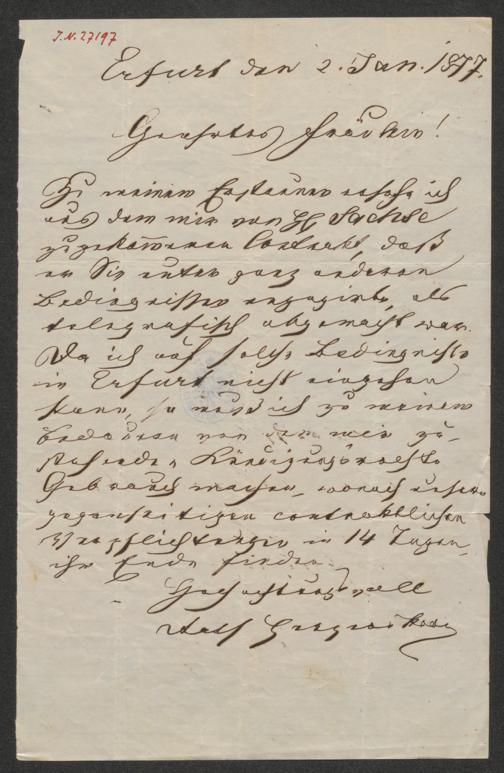 J.N. 27197
Erfurt den 2. Jan. 1877.
Geehrtes Fräulein!
Zu meinem Erstaunen ersehe ich
aus dem mir von H Sachse
zugekom̅enen Contrakt, daß
er Sie unter ganz anderen
Bedingnissen engagirte, als
telegrafisch abgemacht war.
Da ich auf solche Bedingnisse
in Erfurt nicht eingehen
kann, so muß ich zu meinem
Bedauern von dem mir zu-
stehenden Kündigungsrechte
Gebrauch machen, wonach unsere
gegenseitigen contraktlichen
Verpflichtungen in 14 Tagen,
ihr Ende finden.
Hochachtungsvoll